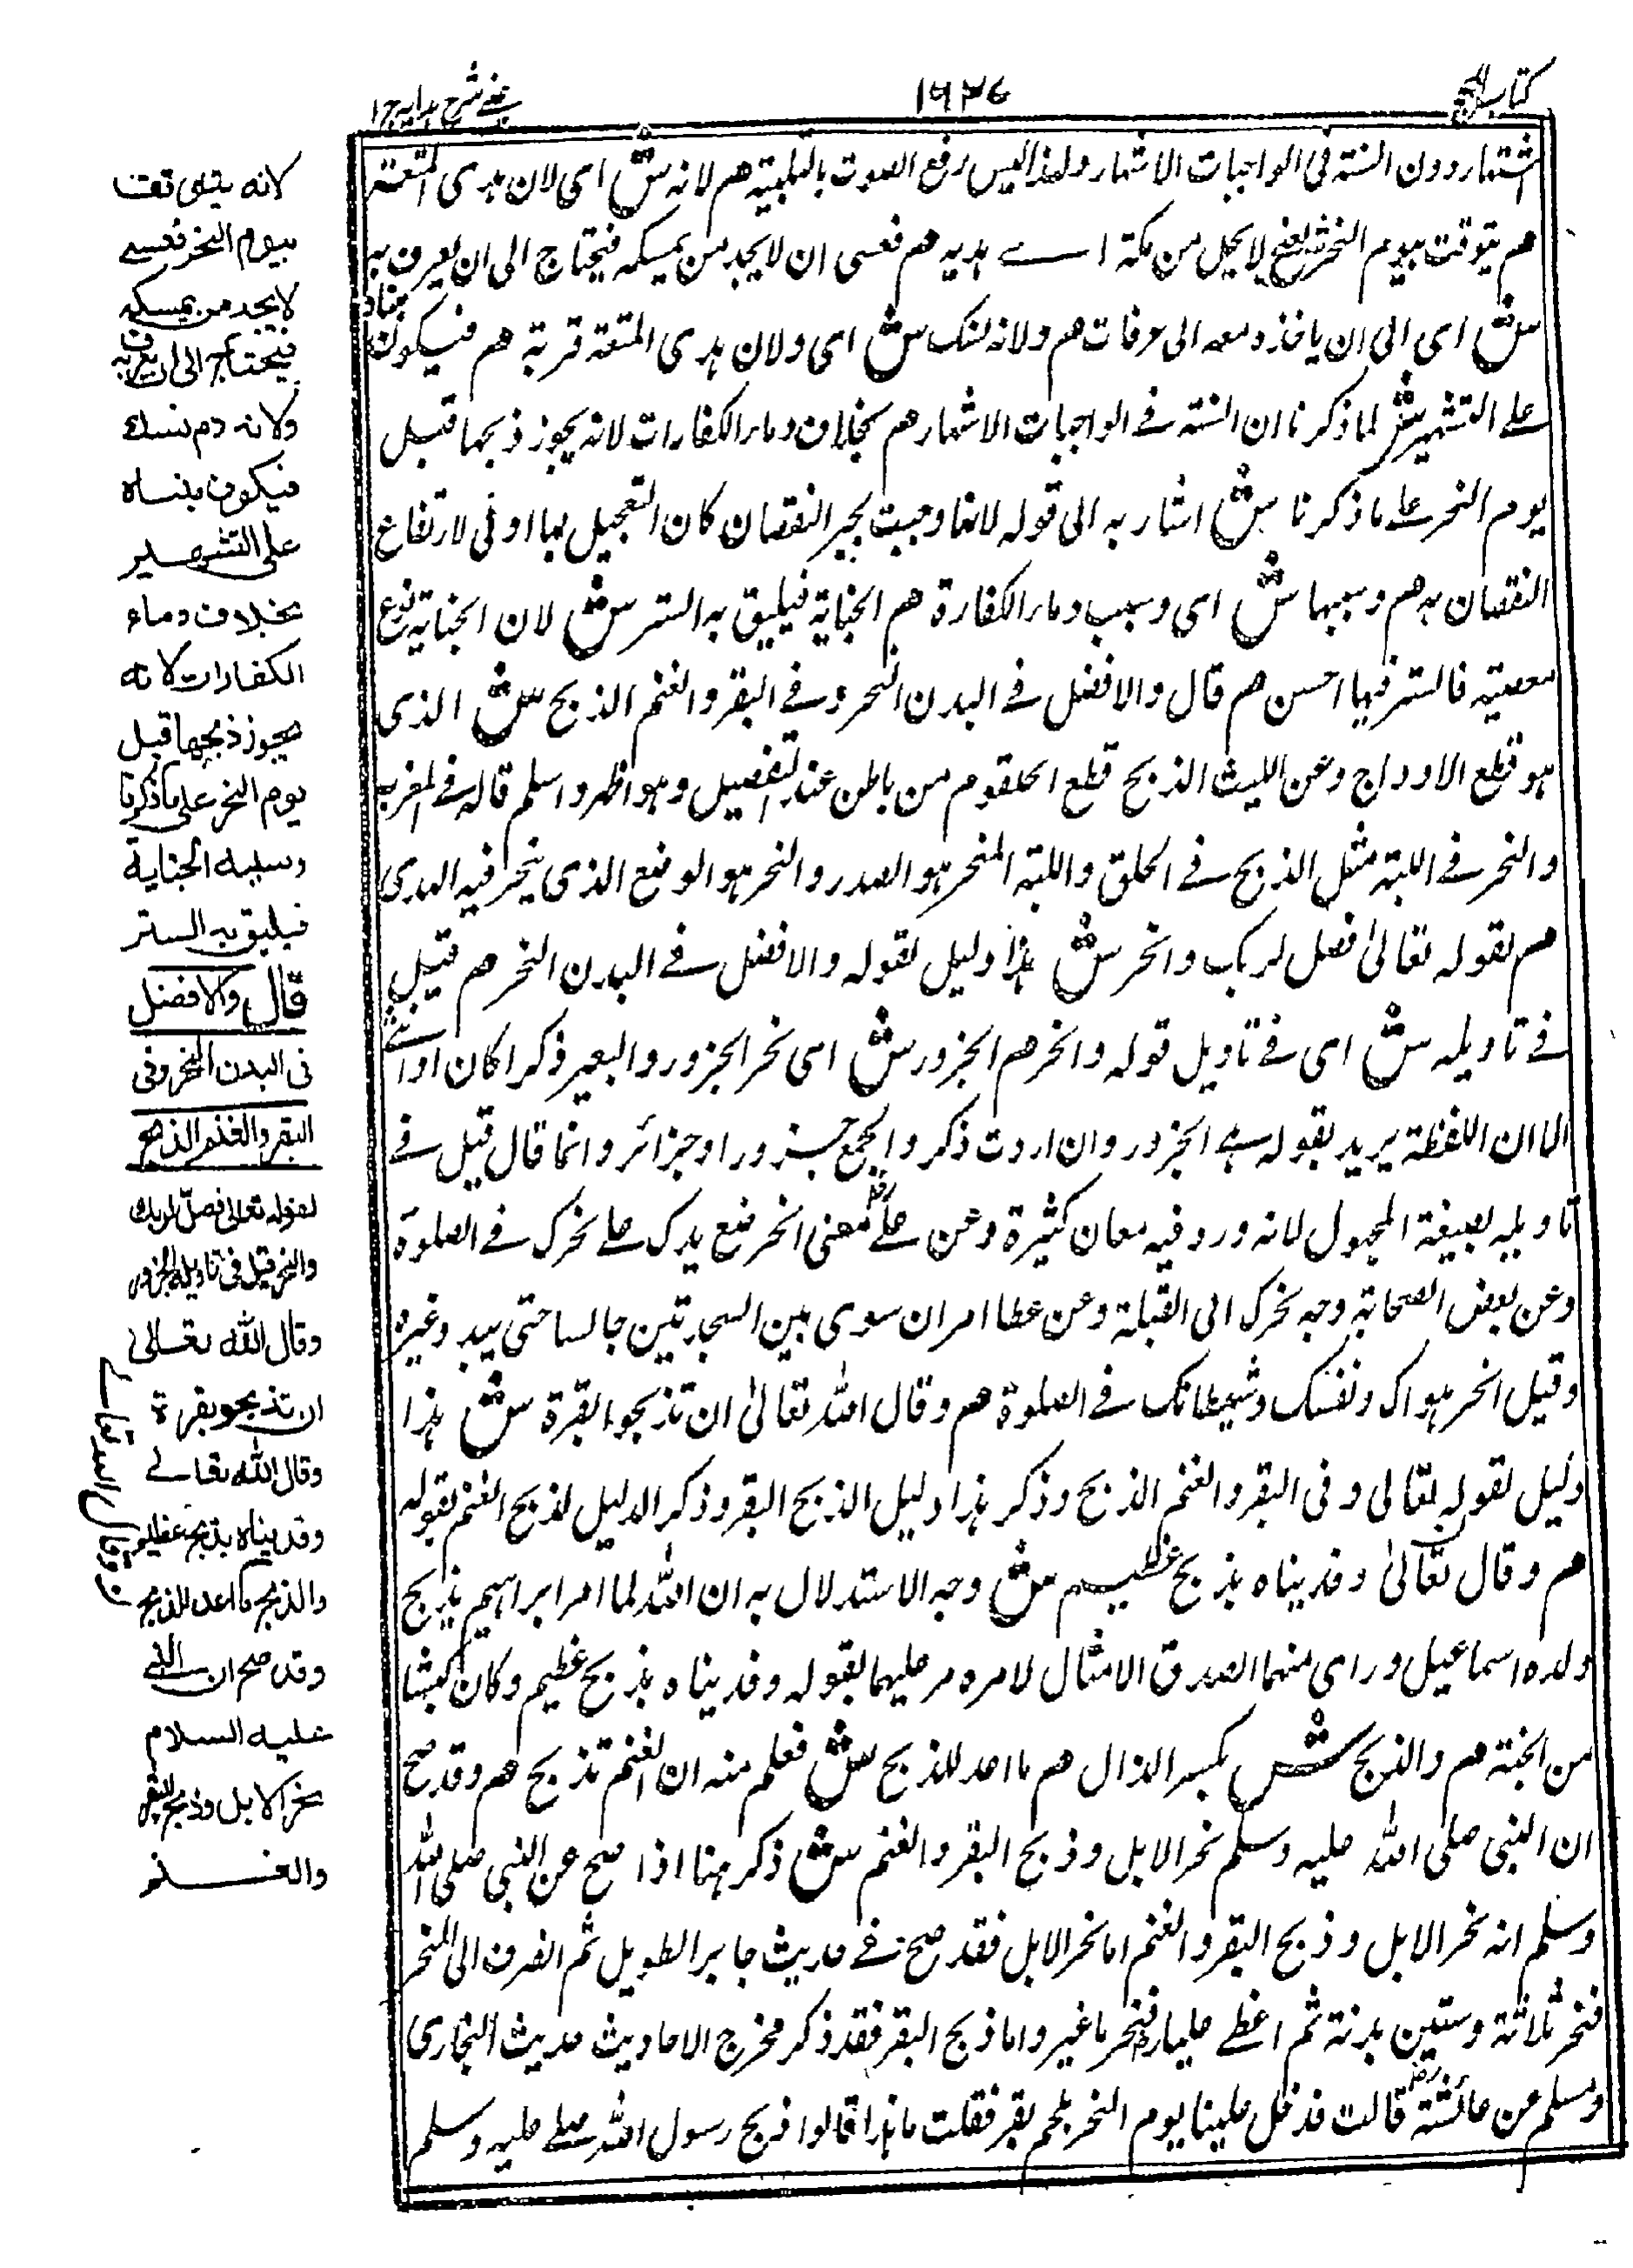 كتاب الحج
١٦٣٧
عینی شرح ہدایہ ج ۱
اشتهار دون السنة فى الواجبات الاشهار ولهذا ليس رفع الصوت بالتلبية هم لانه ش اى لان هدى المتعة
هم يتوقت بيوم النحر ش يعنى لا يحل من مكة اسے هديه هم فعسى ان لا يجد من يمسكه فيحتاج الى ان يعرف به
ش اى الى ان ياخذه معه الى عرفات هم ولانه نسك ش اى ولان هدى المتعة قربة هم فيكون مبناه
على التشهير ش لما ذكرنا ان السنة فے الواجبات الاشهار هم بخلاف دماء الكفارات لانه يجوز ذبحها قبل
يوم النحر على ما ذكرنا ش اشار به الى قوله لانها وجبت لجبر النقصان كان التعجيل بها اولى لارتفاع
النقصان به هم وسببها ش اى وسبب دماء الكفارة هم الجناية فيليق به الستر ش لان الجناية نوع
معصية فالستر فيها احسن هم قال والافضل فے البدن النحر وفے البقر والغنم الذبح ش الذى
هو قطع الاوداج وعن الليث الذبح قطع الحلقوم من باطن عند التفصيل وهو اظهر واسلم قاله فے المغرب
والنحر فے اللبة مثل الذبح فے الحلق واللبة المنحر هو الصدر والنحر هو الوضع الذى ينحر فيه الهدى
هم لقوله تعالى فصل لربك وانحر ش هذا دليل لقوله والافضل فے البدن النحر هم قيل
فے تاويله ش اى فے تاويل قوله وانحر هم الجزور ش اى نحر الجزور والبعير ذكرا كان او انثے
الا ان اللفظة يريد بقوله هے الجزور وان اردت ذكر والجمع جزور او جزائر وانما قال قيل فے
تاويله بصيغة المجهول لانه ورد فيه معان كثيرة وعن على رض معنى انحر ضع يدك على نحرك فے الصلوة
وعن بعض الصحابة وجه نحرك الى القبلة وعن عطا امر ان سوى بين السجدتين جالسا حتى يبد وغيره
وقيل انحر هواك ونفسك وشيطانك فے الصلوة هم وقال الله تعالى ان تذبحوا بقرة ش هذا
دليل لقوله تعالى وفى البقر والغنم الذبح وذكر هذا دليل الذبح البقر وذكر الدليل لذبح الغنم بقوله
هم وقال تعالى وفديناه بذبح عظيم ش وجه الاستدلال به ان الله لما امر ابراهيم بذبح
ولده اسماعيل وراى منهما الصدق الامتثال لامره مر عليهما بقوله وفديناه بذبح عظيم وكان كبشا
من الجنة هم والذبح ش بكسر الذال هم ما اعد للذبح ش فعلم منه ان الغنم تذبح هم وقد صح
ان النبى صلى الله عليه وسلم نحر الابل وذبح البقر والغنم ش ذكر هنا اذا صح عن النبى صلى الله
وسلم انه نحر الابل وذبح البقر والغنم اما نحر الابل فقد صح فے حديث جابر الطويل ثم انصرف الى المنحر
فنحر ثلاثة وستين بدنة ثم اعطے عليا فنحر ما غبر واما ذبح البقر فقد ذكر مخرج الاحاديث حديث البخارى
ومسلم عن عائشة رض قالت فدخل علينا يوم النحر بلحم بقر فقلت ما هذا قالوا ذبح رسول الله صلے عليه وسلم
لانه يتوقت
بيوم النحر فعسے
لا يجد من يمسكه
فيحتاج الى ان يعرف به
ولانه دم نسك
فيكون مبناه
على التشهير
بخلاف دماء
الكفارات لانه
يجوز ذبحها قبل
يوم النحر على ما ذكرنا
وسببه الجناية
فيليق به الستر
قال والافضل
فى البدن النحر وفى
البقر والغنم الذبح
لقوله تعالى فصل لربك
وانحر قيل فى تاويله الجزور
وقال الله تعالى
ان تذبحوا بقرة
وقال الله تعالے
وفديناه بذبح عظيم
والذبح ما اعد للذبح
وقد صح ان النبے
عليه السلام
نحر الابل وذبح البقر
والغنم
ن وقال الله تعالے